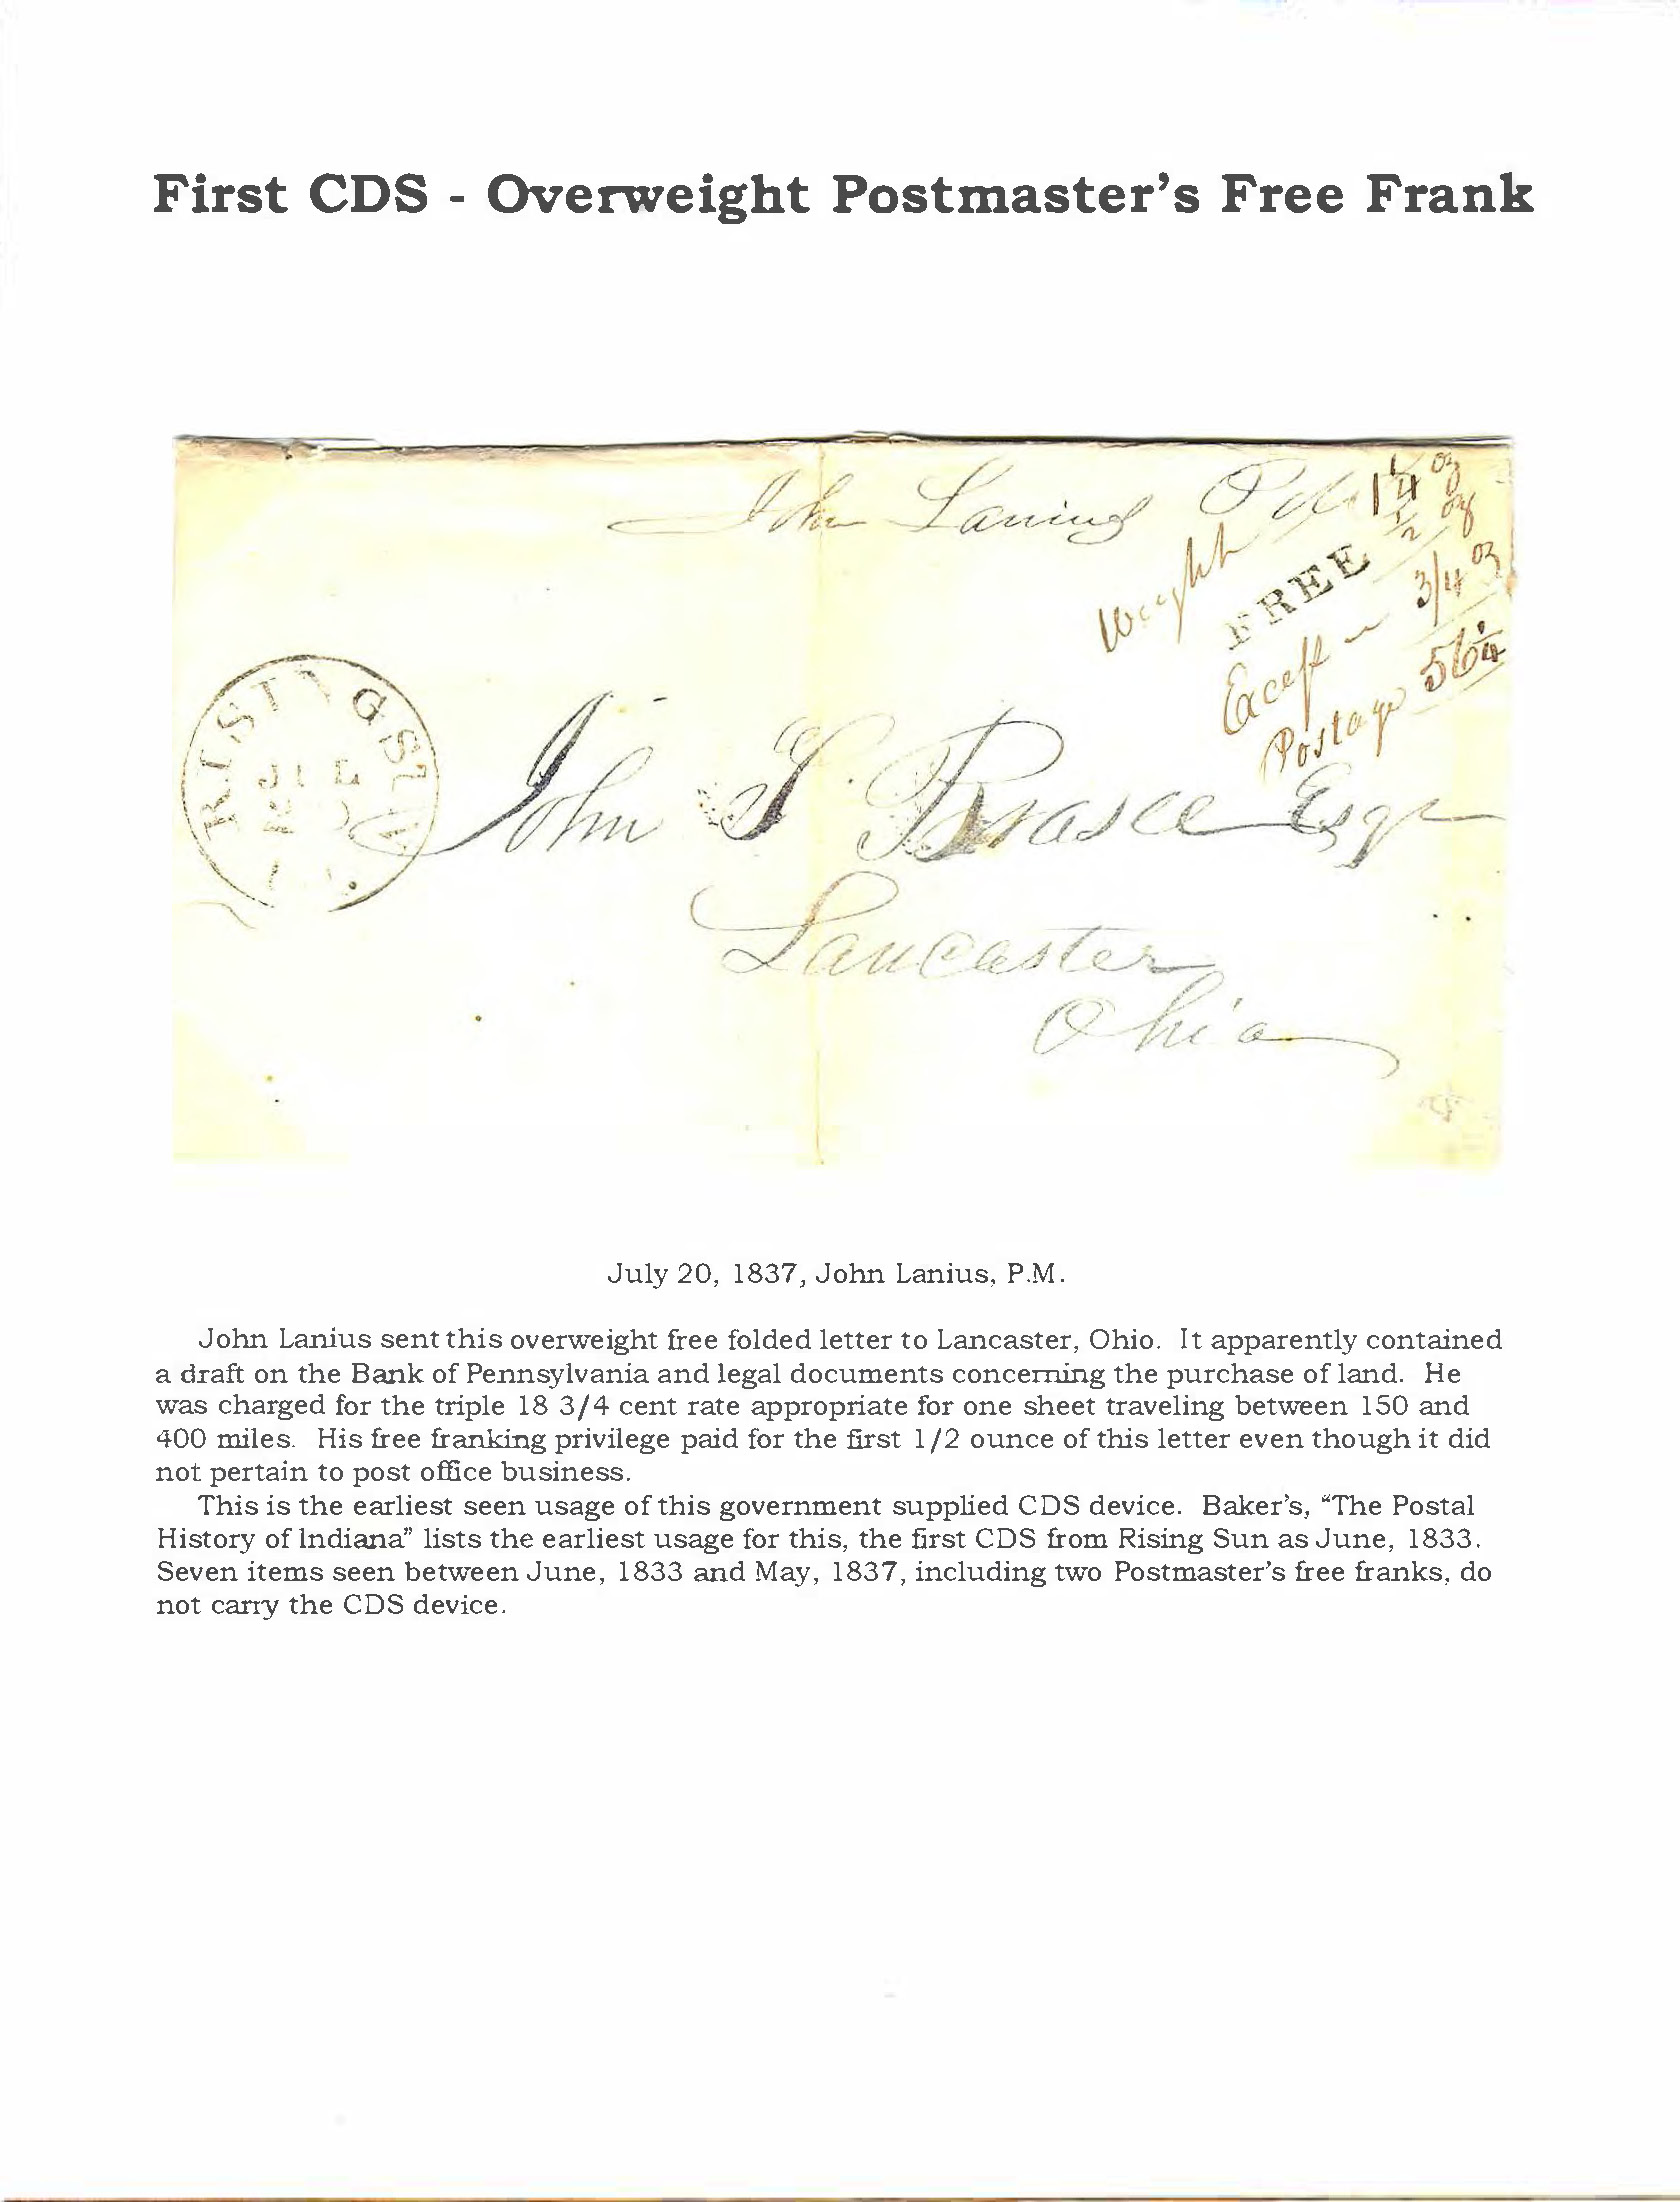 First CDS - Overweight Postmaster's Free Frank
John Lanius P M 1 1/4 oz
1/2 oz
Weight
FREE
Excess 3/4 oz
Postage 56 1/4
RISING SUN
JUL
John T Brasee Esqr
Lancaster
Ohio
July 20, 1837, John Lanius, P.M.
John Lanius sent this overweight free folded letter to Lancaster, Ohio. It apparently contained
a draft on the Bank of Pennsylvania and legal documents concerning the purchase of land. He
was charged for the triple 18 3/4 cent rate appropriate for one sheet traveling between 150 and
400 miles. His free franking privilege paid for the first 1/2 ounce of this letter even though it did
not pertain to post office business.
This is the earliest seen usage of this government supplied CDS device. Baker's, "The Postal
History of Indiana" lists the earliest usage for this, the first CDS from Rising Sun as June, 1833.
Seven items seen between June, 1833 and May, 1837, including two Postmaster's free franks, do
not carry the CDS device.